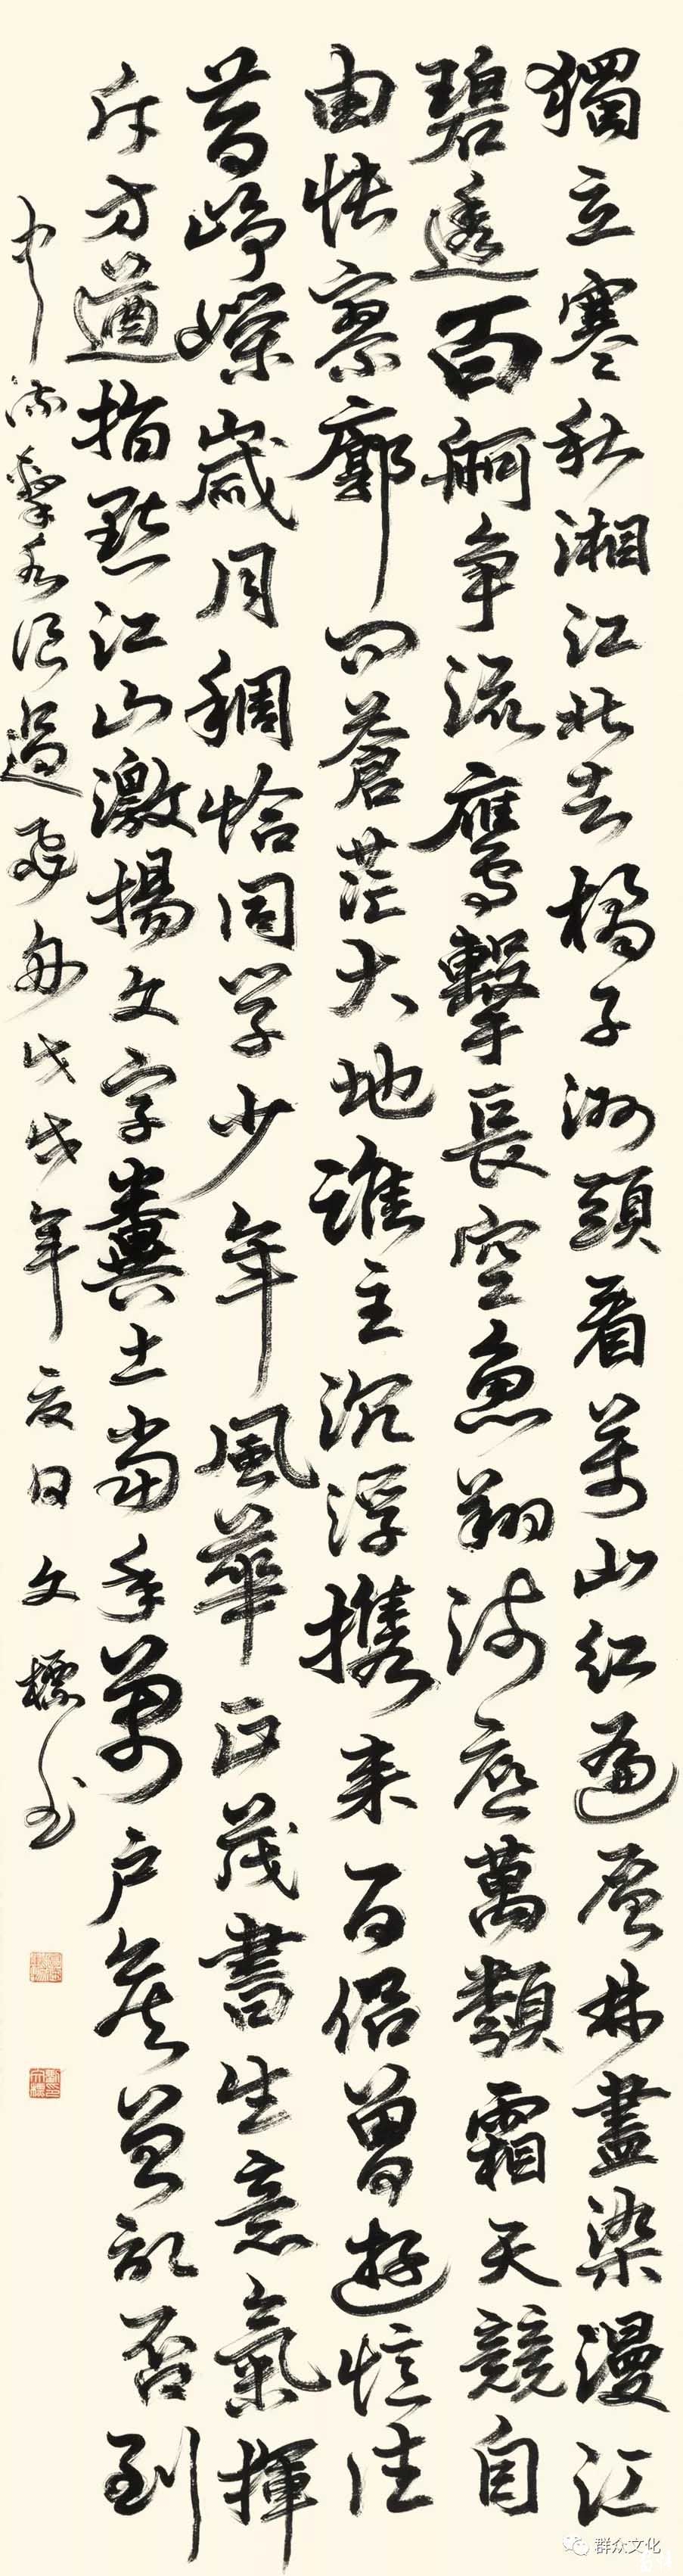 獨立寒秋湘江北去橘子洲頭看萬山红遍層林盡染漫江
碧透百舸争流鷹擊長空魚翔淺底萬類霜天競自
由悵寥廓问蒼茫大地誰主沉浮携来百侣曾遊憶往
昔崢嶸歲月稠恰同学少年風華正茂書生意氣揮
斥方遒指點江山激揚文字糞土當年萬户侯曾記否到
中流擊水浪遏飛舟戊戌年夏日文標书
群众文化